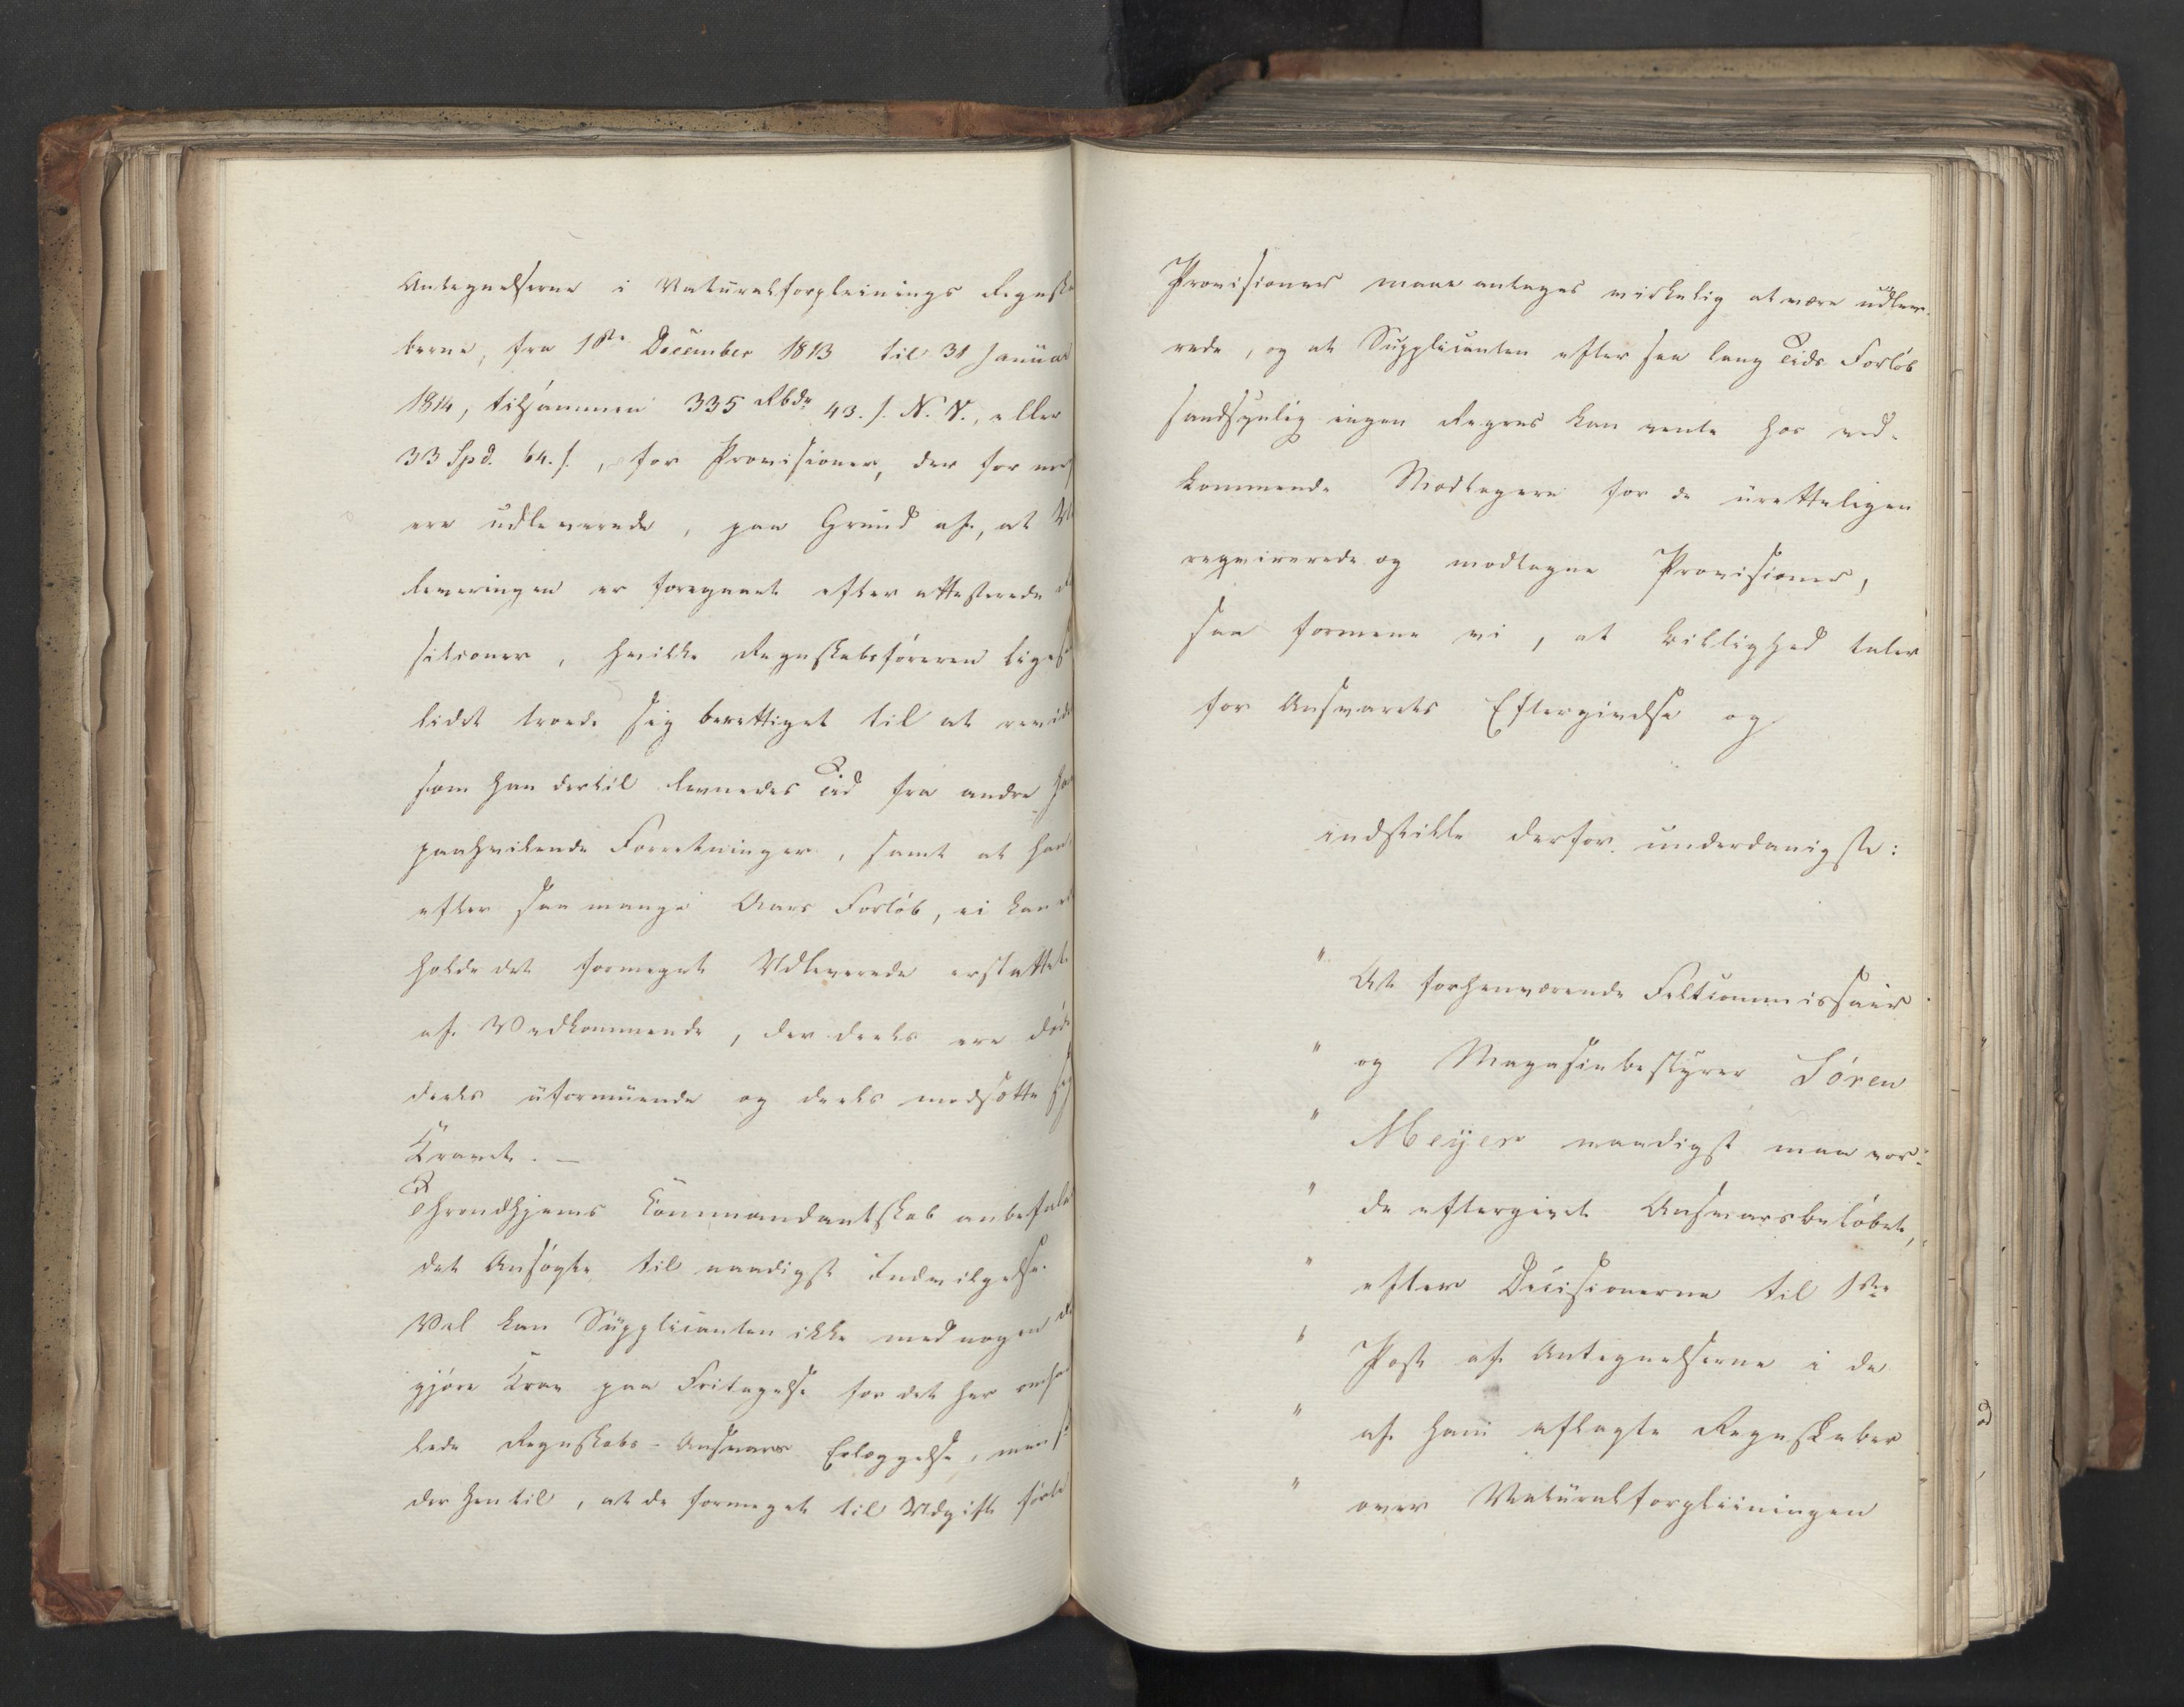 Antegnelserne i Naturalforpleinings Regnska
berne, fra 1ste December 1813 til 31 Januar
1814, tilsammen 335 Rbdr 43. s. N. V., eller
33 Spd. 64. s., for Provisioner, der for me
ere udleverede, paa Grund af, at
leveringen er foregaaet efter attesterede
sitioner, hvilke Regnskabsføreren liges
lidet troede sig berettiget til at revide
som han dertil levnedes Tid fra andre
paahvilende Forretninger, samt at han
efter saa mange Aars Forløb, ei kan
holde det formeget Udleverede erstattet
af Vedkommende, der deels ere døde
deels uformuende og deels modsætte sig
Kravet. —
Throndhjems Commandantskab anbefale
det Ansøgte til naadigst Indvilgelse.
Vel kan Supplicanten ikke med nogen
gjøre Krav paa Fritagelse for det her omha
lede Regnskabs-Ansvars Erlæggelse, men
der hentil, at de formeget til Udgift førte
Provisioner maae antages virkelig at være udleve-
rede, og at Supplicanten efter saa lang Tids Forløb
sandsynlig ingen Regres kan vente hos ved-
kommende Modtagere for de uretteligen
reqvirerede og modtagne Provisioner,
saa formene vi, at Billighed taler
for Ansvarets Eftergivelse og
indstille derfor underdanigst:
" At forhenværende Feltcommissair
" og Magasinbestyrer Søren
" Meÿer naadigst maa vor-
" de eftergivet Ansvarsbeløbet,
" efter Decisionerne til 1ste
" Post af Antegnelserne i de
" af ham aflagte Regnskaber
" over Naturalforpleiningen